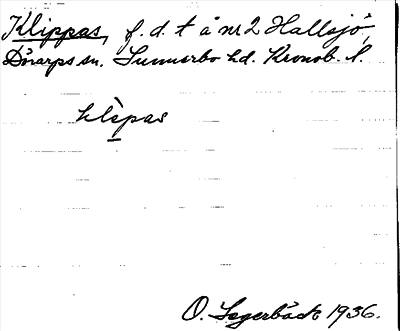 Klippas, f. d. t å nr 2 Hallsjö,
Dörarps sn. Sunnerbo hd. Kronob. l.
klɩ̀pas
O. Segerbäck 1936.